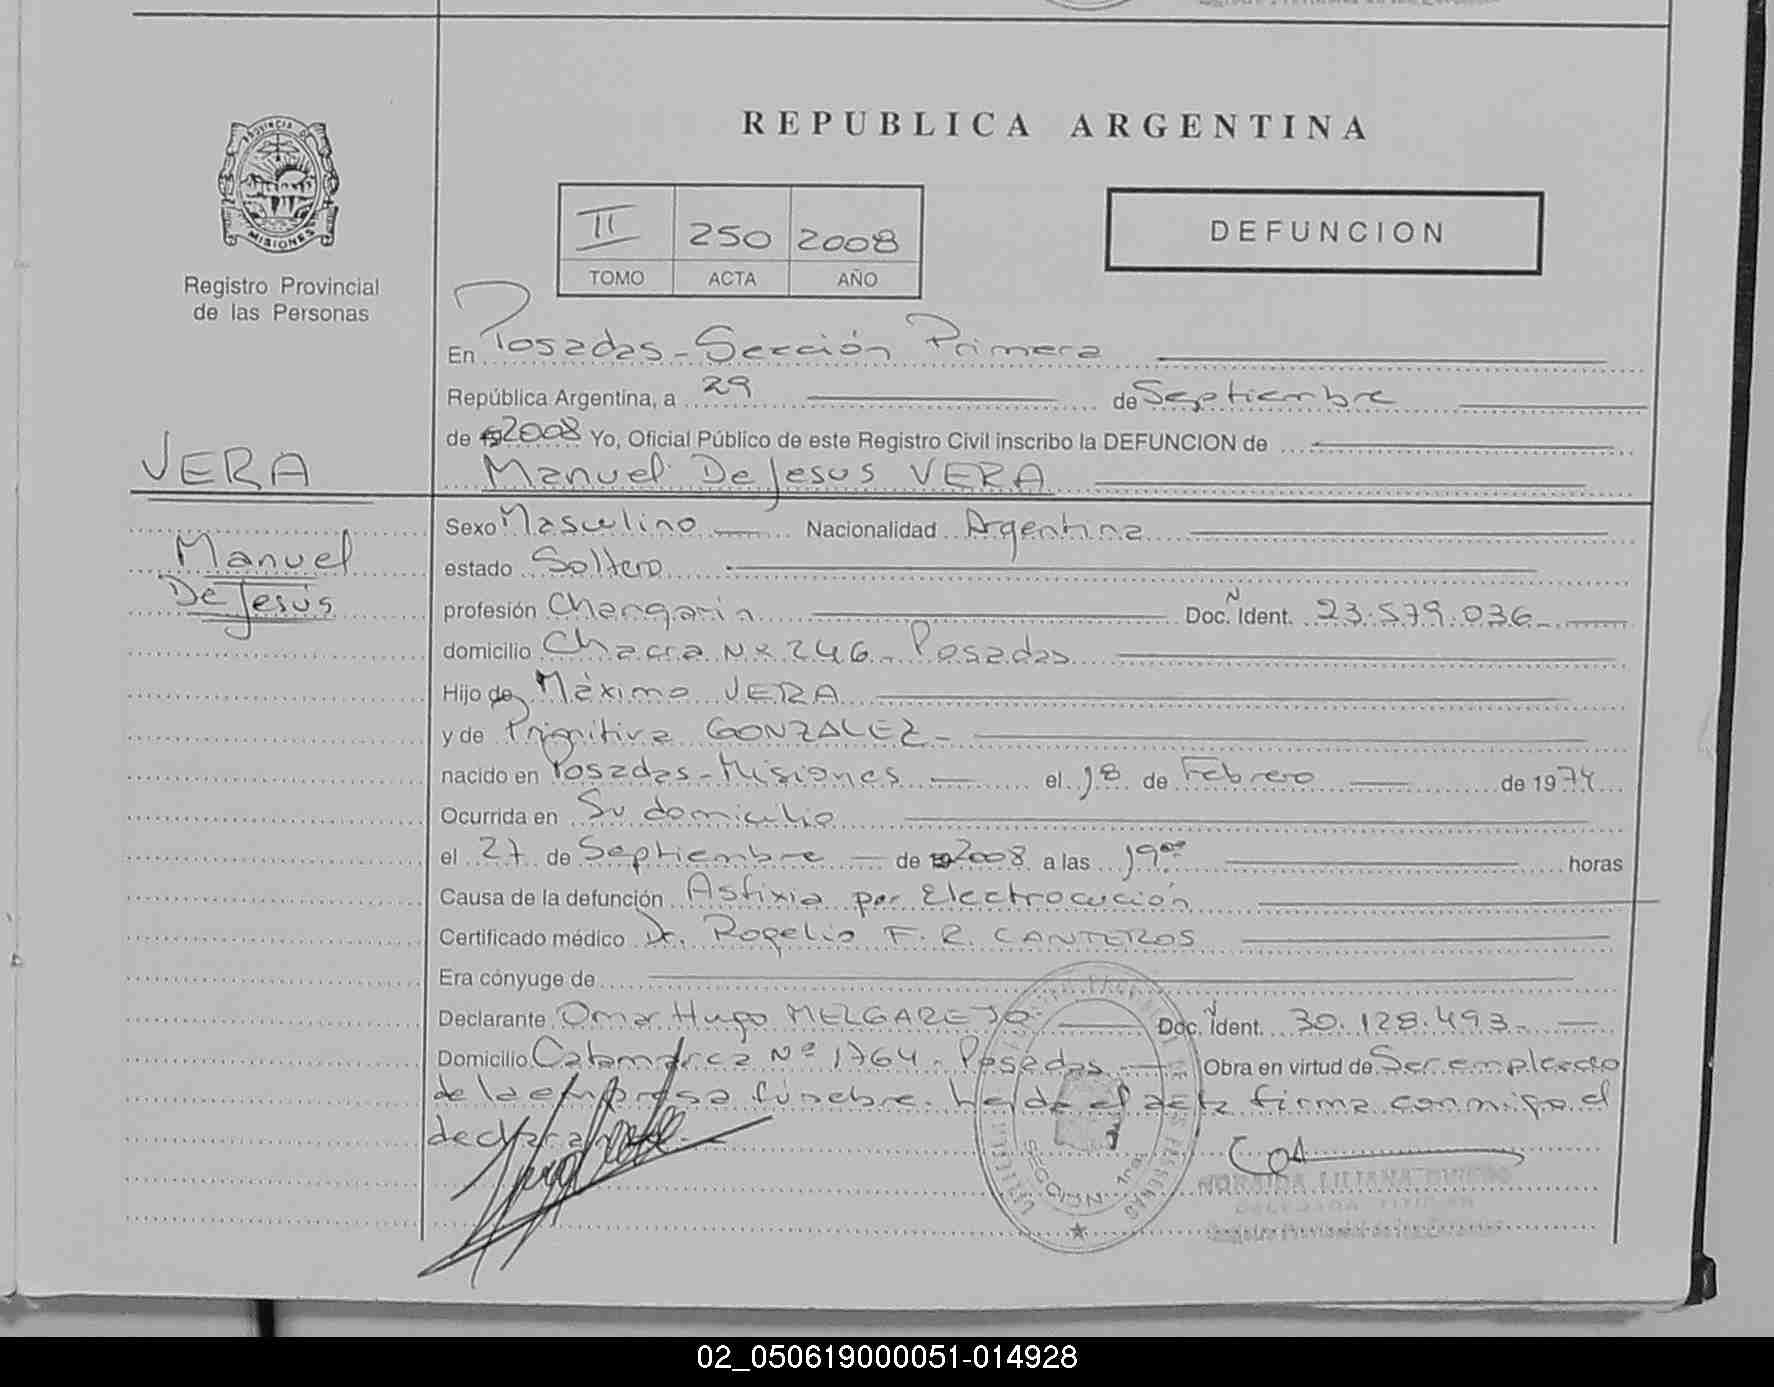 REPUBLICA ARGENTINA
PROVINCIA DE
MISIONES
Registro Provincial
de las Personas
II 250 2008
TOMO ACTA AÑO
DEFUNCION
En Posadas - Sección Primera
República Argentina, a 29 de Septiembre
de 2008 Yo, Oficial Público de este Registro Civil inscribo la DEFUNCION de
Manuel De Jesus VERA
VERA
Manuel
De Jesús
Sexo Masculino Nacionalidad Argentina
estado Soltero
profesión Changarín Doc. N Ident. 23.579.036
domicilio Chacra Nº 246 - Posadas
Hijo de Máximo VERA
y de Primitiva GONZALEZ -
nacido en Posadas - Misiones el 18 de Febrero de 1974
Ocurrida en Su domicilio
el 27 de Septiembre de 2008 a las 19 00 horas
Causa de la defunción Asfixia por Electrocución
Certificado médico Dr. Rogelio F. R. CANTEROS
Era cónyuge de
Declarante Omar Hugo MELGAREJO Doc. N Ident. 30.128.493
Domicilio Catamarca Nº 1764 - Posadas Obra en virtud de Ser empleado
de la empresa fúnebre. Leída el acta firma conmigo el
declarante.
SECCION 1ra
NORAIDA LILIANA OVIEDO
DELEGADA TITULAR
Registro Provincial de las Personas
02_050619000051-014928